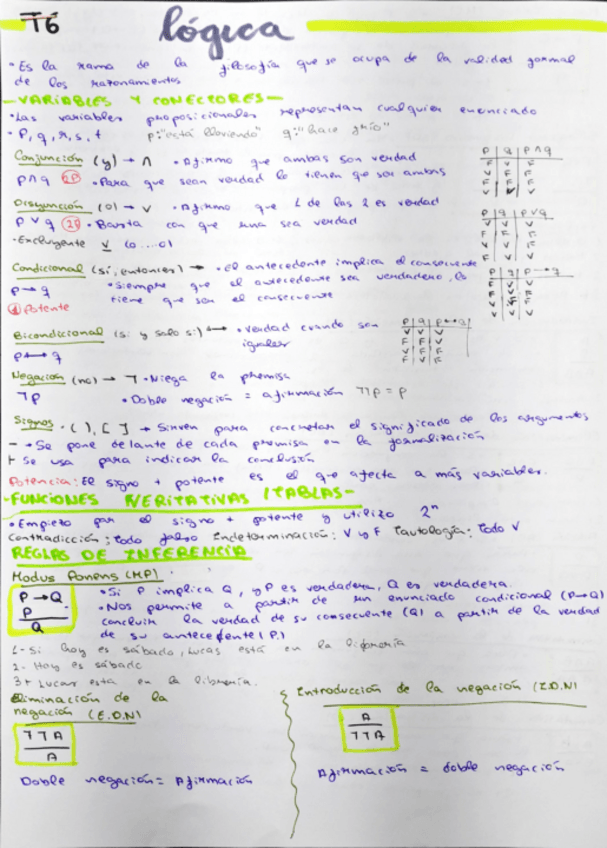 T6
lógica
• Es la rama de la filosofía que se ocupa de la validez formal
de los razonamientos
-VARIABLES Y CONECTORES-
• Las variables proposicionales representan cualquier enunciado
• P, q, r, s, t p: "está lloviendo" q: "hace frío"
Conjunción (y) → ∧ • Afirmo que ambas son verdad
p∧q • Para que sean verdad lo tienen que ser ambas
Disyunción (o) → ∨ • Afirmo que 1 de las 2 es verdad
p∨q • Basta con que una sea verdad
• Excluyente ∨ (o....o)
Condicional (si, entonces) → • el antecedente implica el consecuente
p→q • Siempre que el antecedente sea verdadero, lo
tiene que ser el consecuente
Potente
Bicondicional (si y solo si) ↔ • verdad cuando son
iguales
p↔q
Negación (no) → ¬ • Niega la premisa
¬p • Doble negación = afirmación ¬¬p = p
Signos • ( ), [ ] → Sirven para concretar el significado de los argumentos
- → Se pone delante de cada premisa en la formalización
⊢ Se usa para indicar la conclusión
Potencia: El signo + potente es el que afecta a más variables.
-FUNCIONES VERITATIVAS (TABLAS-
• Empiezo por el signo + potente y utilizo 2ⁿ
Contradicción: todo falso Indeterminación: V y F Tautología: todo V
REGLAS DE INFERENCIA
Modus Ponens (MP)
P → Q
P
Q
• Si P implica Q, y P es verdadera, Q es verdadera.
• Nos permite a partir de un enunciado condicional (P→Q)
concluir la verdad de su consecuente (Q) a partir de la verdad
de su antecedente (P.)
1- Si hoy es sábado, Lucas está en la librería
2- Hoy es sábado
3⊢ Lucas esta en la librería.
Eliminación de la
negación (E.D.N)
¬¬A
A
Doble negación = Afirmación
Introducción de la negación (I.D.N)
A
¬¬A
Afirmación = doble negación